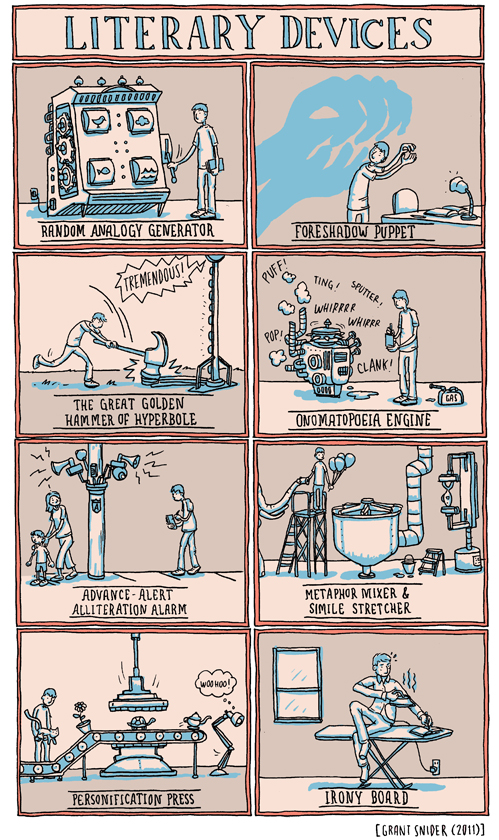 LITERARY DEVICES
RANDOM ANALOGY GENERATOR
FORESHADOW PUPPET
TREMENDOUS!
THE GREAT GOLDEN
HAMMER OF HYPERBOLE
PUFF!
TING!
SPUTTER,
WHIRRRR
WHIRRR
POP!
CLANK!
GAS
ONOMATOPOEIA ENGINE
ADVANCE-ALERT
ALLITERATION ALARM
METAPHOR MIXER &
SIMILE STRETCHER
WOOHOO!
PERSONIFICATION PRESS
IRONY BOARD
[GRANT SNIDER (2011)]